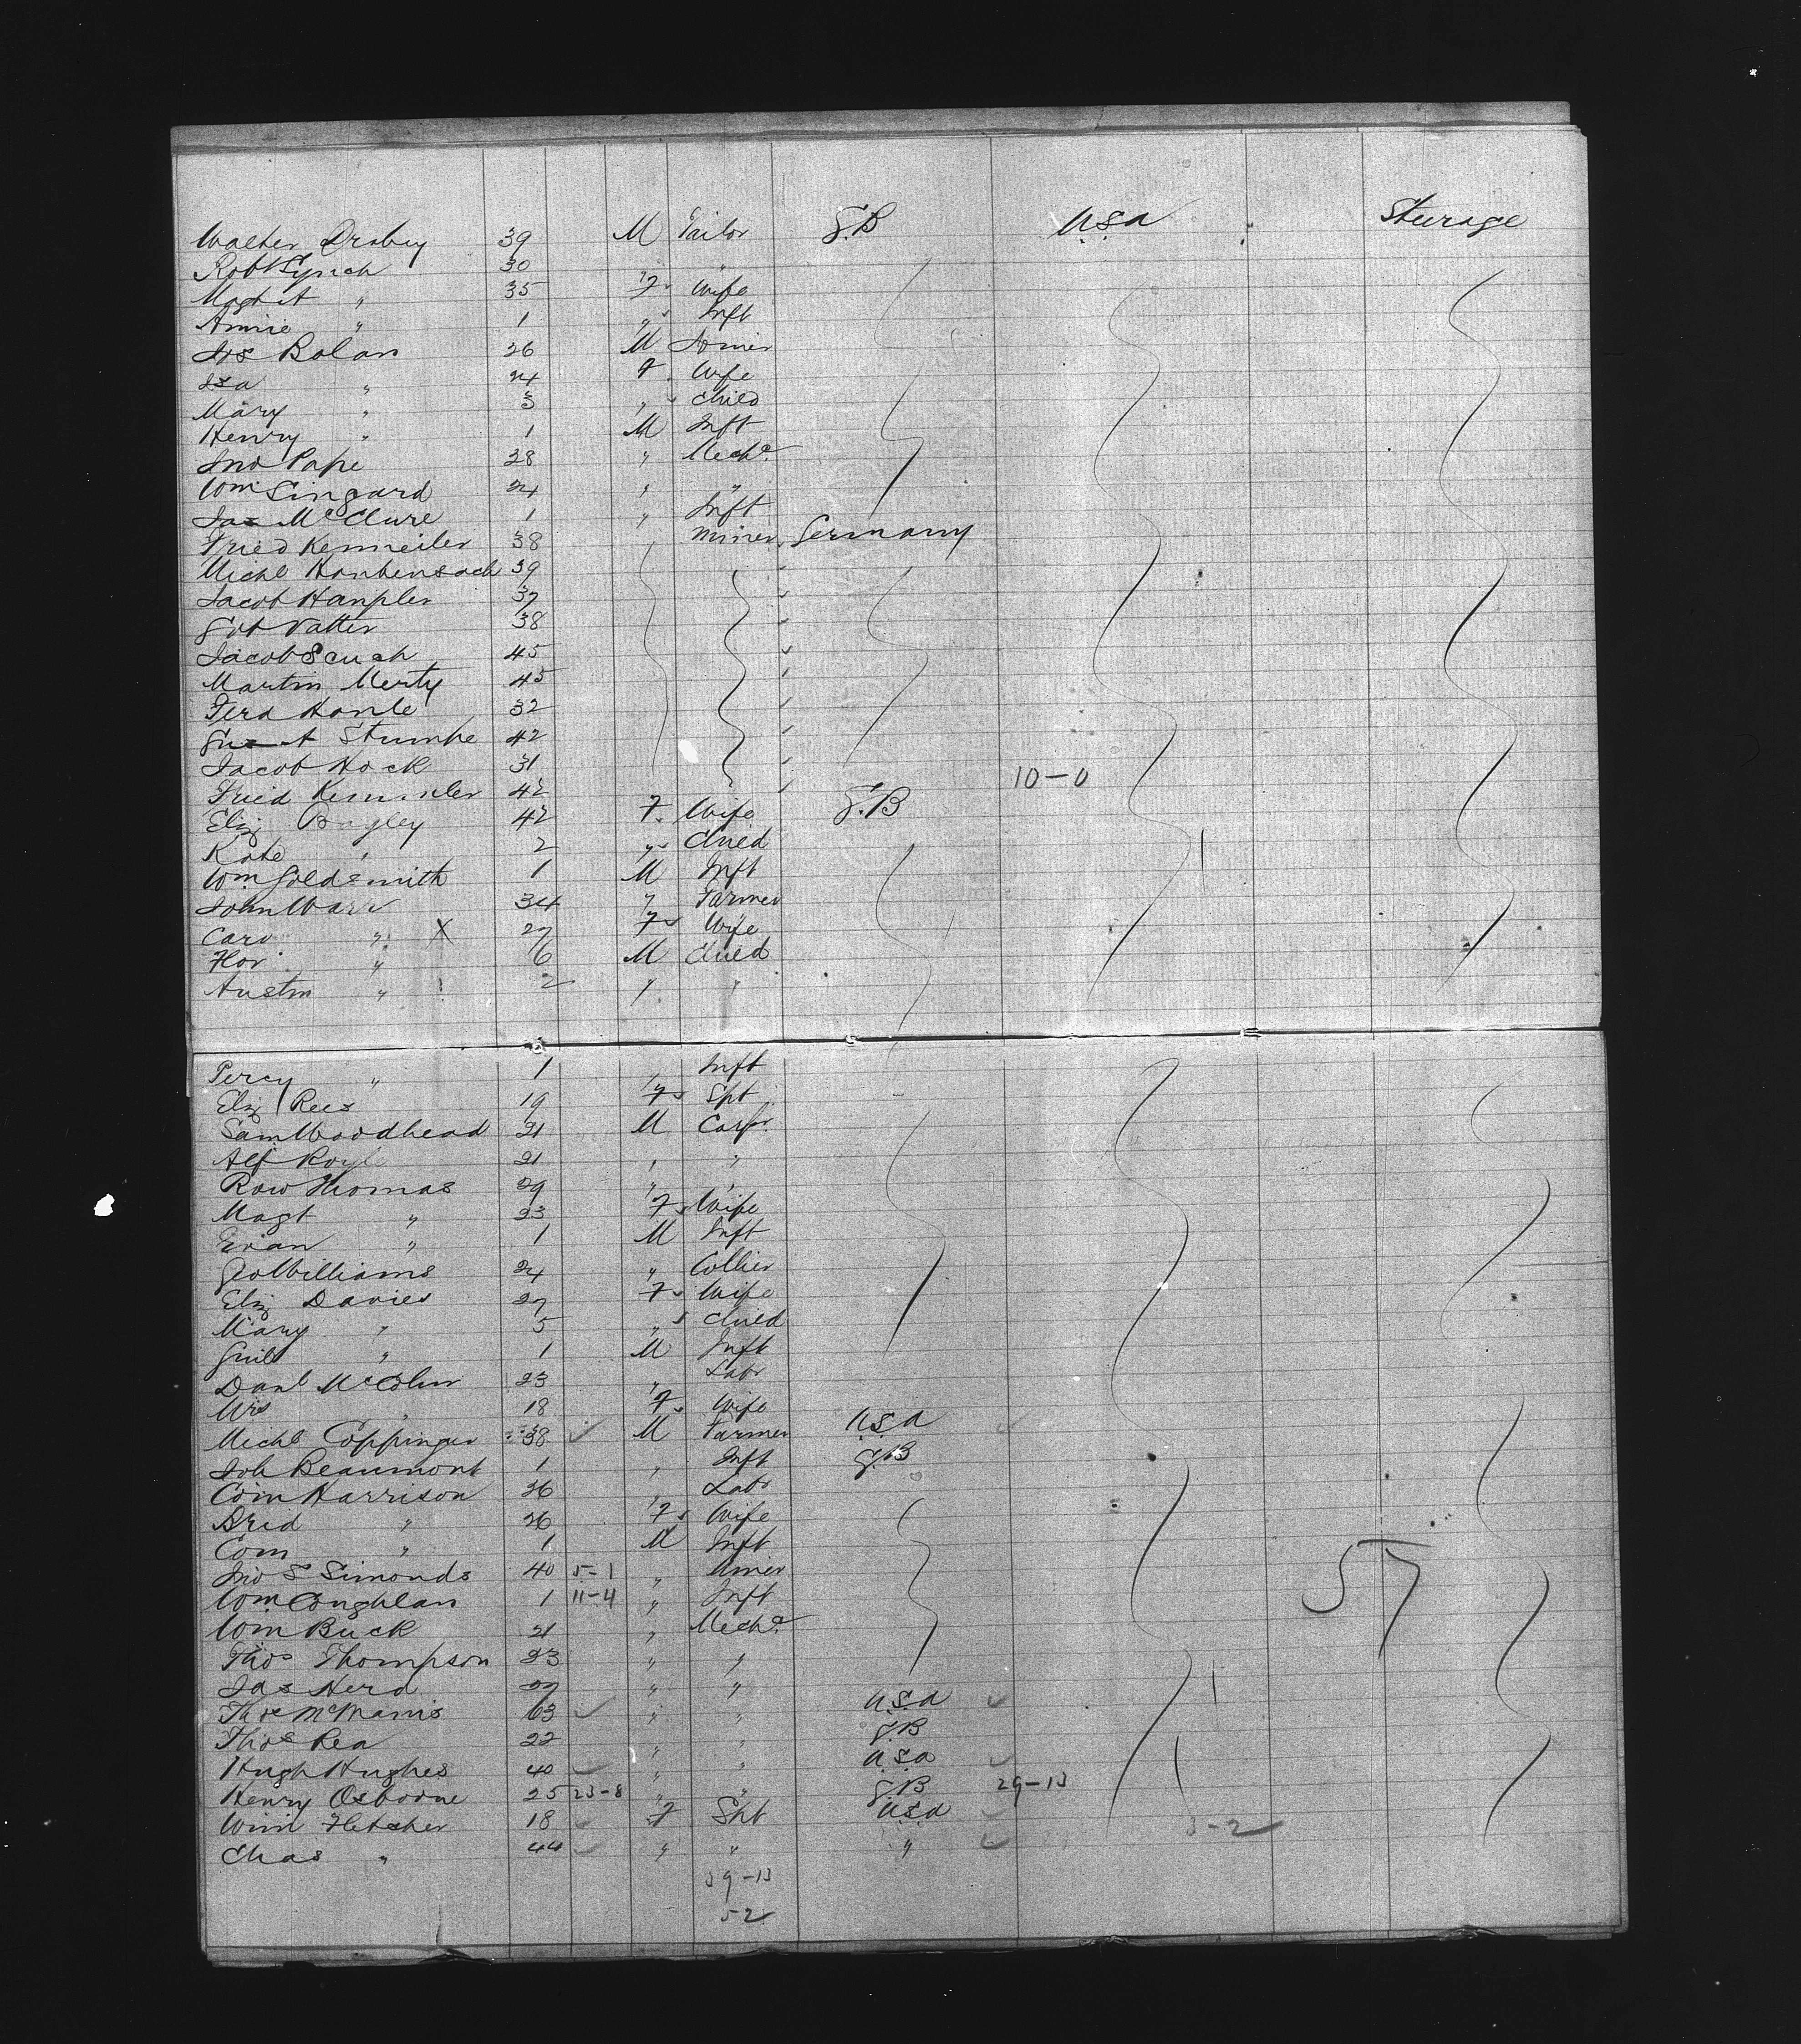 Walter Drabey 39 M Tailor G.B USA Steerage
Robt Lynch 30 "
Magt A " 35 F. Wife
Annie " 1 " Inft
Jos Bolan 26 M Joiner
Isa " 24 F. Wife
Mary " 3 " Child
Henry " 1 M Inft
Jno Pape 38 " Mechc
Wm Lingard 24 " "
Jas McClure 1 " Inft
Fried Kenneiler 38 Miner Germany
Michl 39
Jacob Hampler 37
Gob Vatter 38
Jacob 45
Martin Merty 45
Ferd Hanle 32
Gust Stumpe 42
Jacob Hock 31
Fried Kemmler 42 10-0
Eliz Bagley 42 F. Wife G.B
Kate " 2 " Child
Wm Goldsmith 1 M Inft
John Warr 34 " Farmer
Caro " X 27 F Wife
Flor " 6 M Child
Austin " 2 " "
Percy " 1 " Inft
Eliz Rees 19 F Spt
Sam Woodhead 21 M Carpr
Alf Royle 21 " "
Row Thomas 29 " "
Magt " 23 F Wife
Evan " 1 M Inft
Geo Williams 24 " Collier
Eliz Davies 27 F Wife
Mary " 5 " Child
" 1 M Inft
Danl McColm 23 " Labr
Mrs " 18 F. Wife
Michl Coppinger 38 M Farmer U.S.A
Joh Beaumont 1 " Inft G.B
Corn Harrison 26 " Labr
Brid " 26 F Wife
Corn " 1 M Inft
Jno S Simonds 40 5-1 " Miner
Wm Coughlan 1 11-4 " Inft 57
Wm Buck 21 " Mechc
Thos Thompson 23 " "
Jas Herd 27 " "
Thos McManis 63 " " U.S.A
Thos Rea 22 " " G.B
Hugh Hughes 40 " " U.S.A
Henry Osborne 25 23-8 " " G.B 29-13
Wm Fletcher 18 F Spt U.S.A 3-2
Chas " 44 " " "
39-13
52